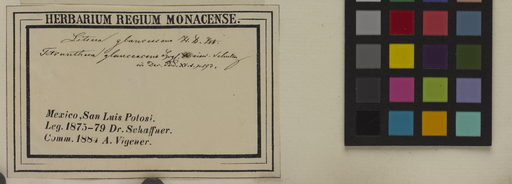 HERBARIUM REGIUM MONACENSE.
Litsea glaucescens H. B. K.
Tetranthera glaucescens
in
Mexico, San Luis Potosi.
Leg. 1875-79 Dr. Schaffner.
Comm. 1884 A. Vigener.